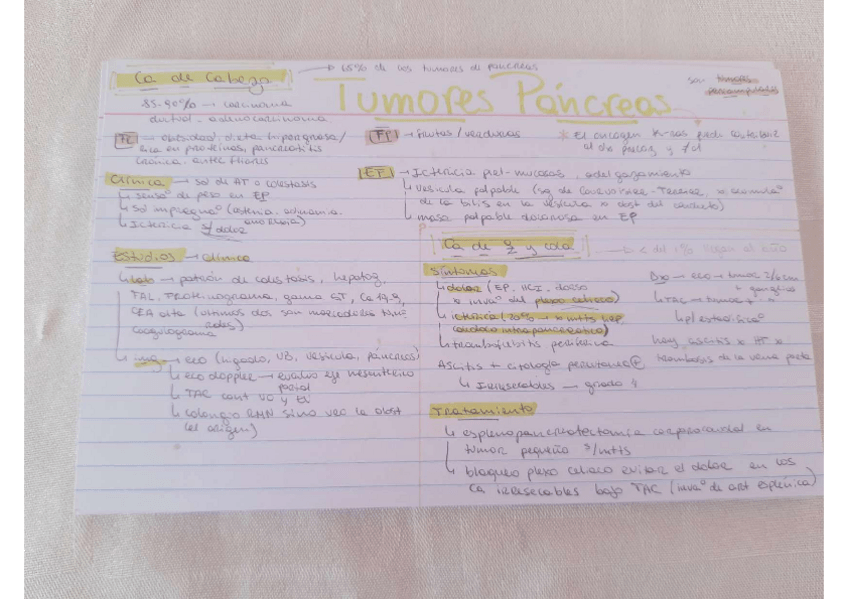 Tumores Páncreas
Ca de Cabeza → 65% de los tumores de páncreas
85-90% → carcinoma
ductal - adenocarcinoma
FR → obesidad, dieta hipergrasa/
rica en proteínas, pancreatitis
crónica, antec fliares
FP → frutas / verduras
* El oncogen K-ras
al dx precoz y
Clínica → sd de HT o colestasis
↳ descenso de peso en EP
↳ sd impregna° (astenia, adinamia,
anorexia)
↳ Ictericia s/ dolor
EF → Ictericia piel-mucosas, adelgazamiento
↳ vesícula palpable (sg de Courvoisier-Terrier, x acumula°
de la bilis en la vesícula x obst del conducto)
↳ masa palpable dolorosa en EP
Estudios → clínica
↳ lab → patrón de colestasis, hepatog,
FAL, proteinograma, gama GT, Ca 19.9,
CEA alta (últimos dos son marcadores tumo
rales)
coagulograma
↳ img → eco (hígado, VB, vesícula, páncreas)
↳ eco doppler → evalúo eje mesentérico
portal
↳ TAC cont VO y EV
↳ colangio RMN sirve ver la obst
(el origen)
Ca de y cola → b < del 1% llegan al año
Síntomas
↳ dolor (EP, HCI, dorso
x inva° del plexo celíaco)
↳ ictericia (20% → x mtts hep,
colédoco intrapancreático)
↳ tromboflebitis periférica
Ascitis + citología peritoneal +
↳ Irresecables → grado 4
Dx → eco → tumor
↳ TAC → tumor
↳ p/ estadifica°
hay ascitis x HT x
trombosis de la vena porta
Tratamiento
↳ esplenopancreatectomía corporocaudal en
tumor pequeño s/mtts
↳ bloqueo plexo celíaco evitar el dolor en los
ca irresecables bajo TAC (inva° de art esplénica)